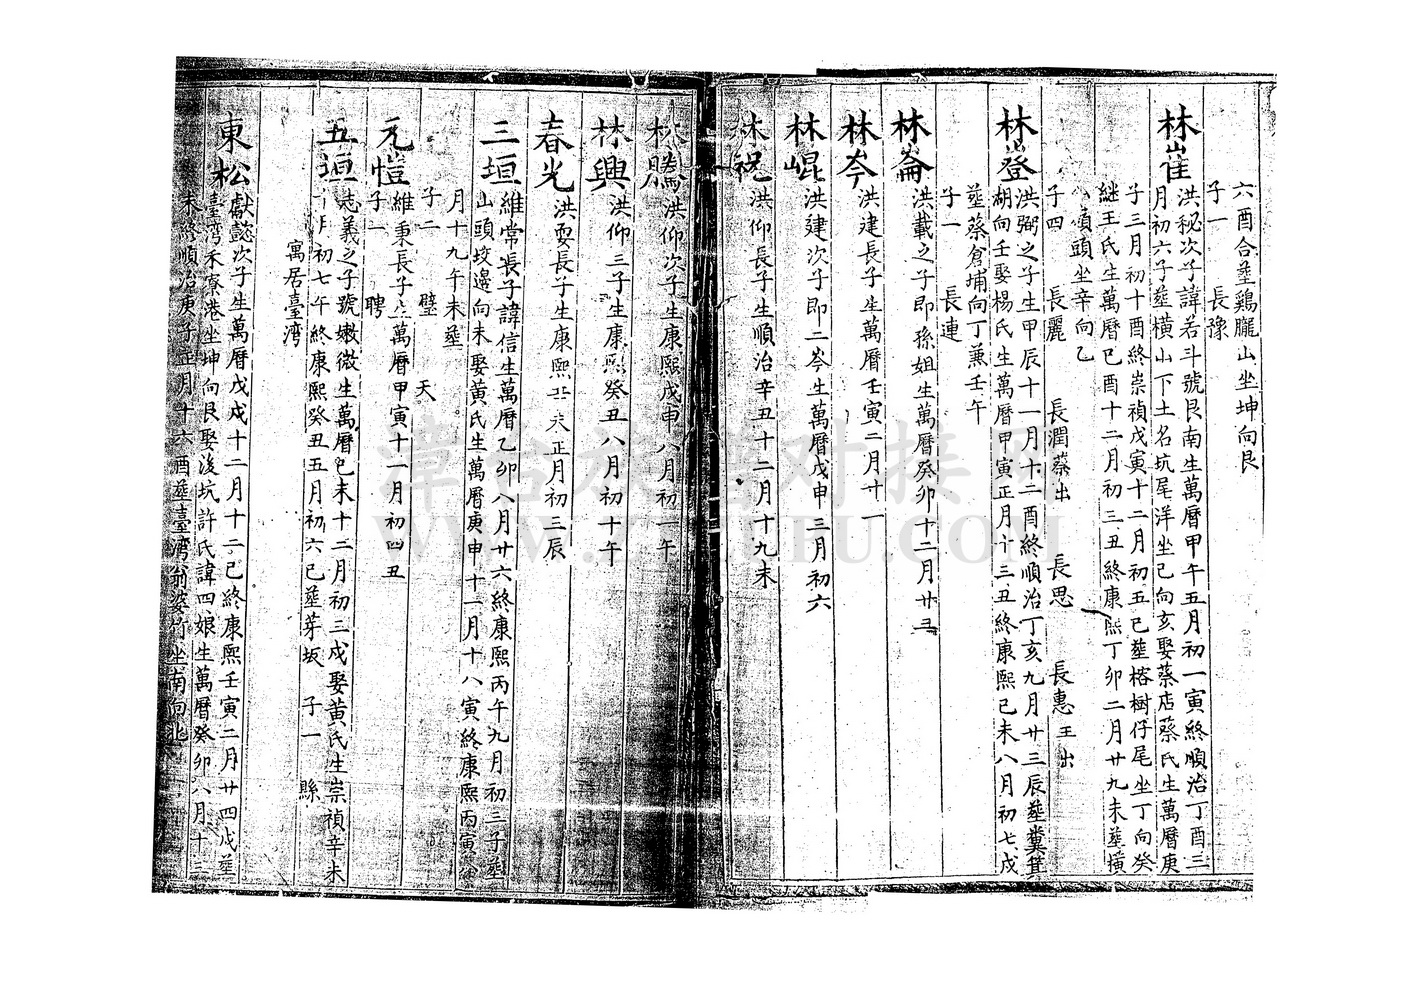 六酉合塟鷄朧山坐坤向艮
子一 長豫
林嵀 洪秘次子諱若斗號艮南生萬曆甲午五月初一寅終順治丁酉三
月初六子塟橫山下土名坑尾洋坐己向亥娶蔡店蔡氏生萬曆庚
子三月初十酉終崇禎戊寅十二月初五已塟榕樹仔尾坐丁向癸
継王氏生萬曆己酉十二月初三丑終康熙丁卯二月廿九未塟橫
頭坐辛向乙
子四 長麗 長潤蔡出 長思 長惠王出
林㠭 洪弼之子生甲辰十一月十二酉終順治丁亥九月廿三辰塟糞箕
湖向壬娶楊氏生萬曆甲寅正月十三丑終康熙己未八月初七戌
塟蔡倉埔向丁兼壬午
子一 長連
林崙 洪載之子即孫姐生萬曆癸卯十二月廿三
林岑 洪建長子生萬曆壬寅二月廿一
林崐 洪建次子即二岑生萬曆戊申三月初六
林祝 洪仰長子生順治辛丑十二月十九未
林騰 洪仰次子生康熙戊申八月初一午
林興 洪仰三子生康熙癸丑八月初十午
春光 洪耍長子生康熙 未正月初三辰
三垣 維常長子諱信生萬曆乙卯八月廿六終康熙丙午九月初三子塟
山頭坟邊向未娶黃氏生萬曆庚申十一月十八寅終康熙丙寅
月十九午未塟
子二 壁 天
元愷 維秉長子生萬曆甲寅十一月初四丑
子一 聘
五垣 志義之子號嫩微生萬曆己未十二月初三戌娶黃氏生崇禎辛未
十月初七午終康熙癸丑五月初六已塟芽坂 子一 縣
寓居臺湾
東松 獻懿次子生萬曆戊戌十二月十二已終康熙壬寅二月廿四戌塟
臺湾禾寮港坐坤向艮娶後坑許氏諱四娘生萬曆癸卯八月十三
未終順治庚子正月十六酉塟臺湾翁婆竹坐南向北
漳台族譜对接网